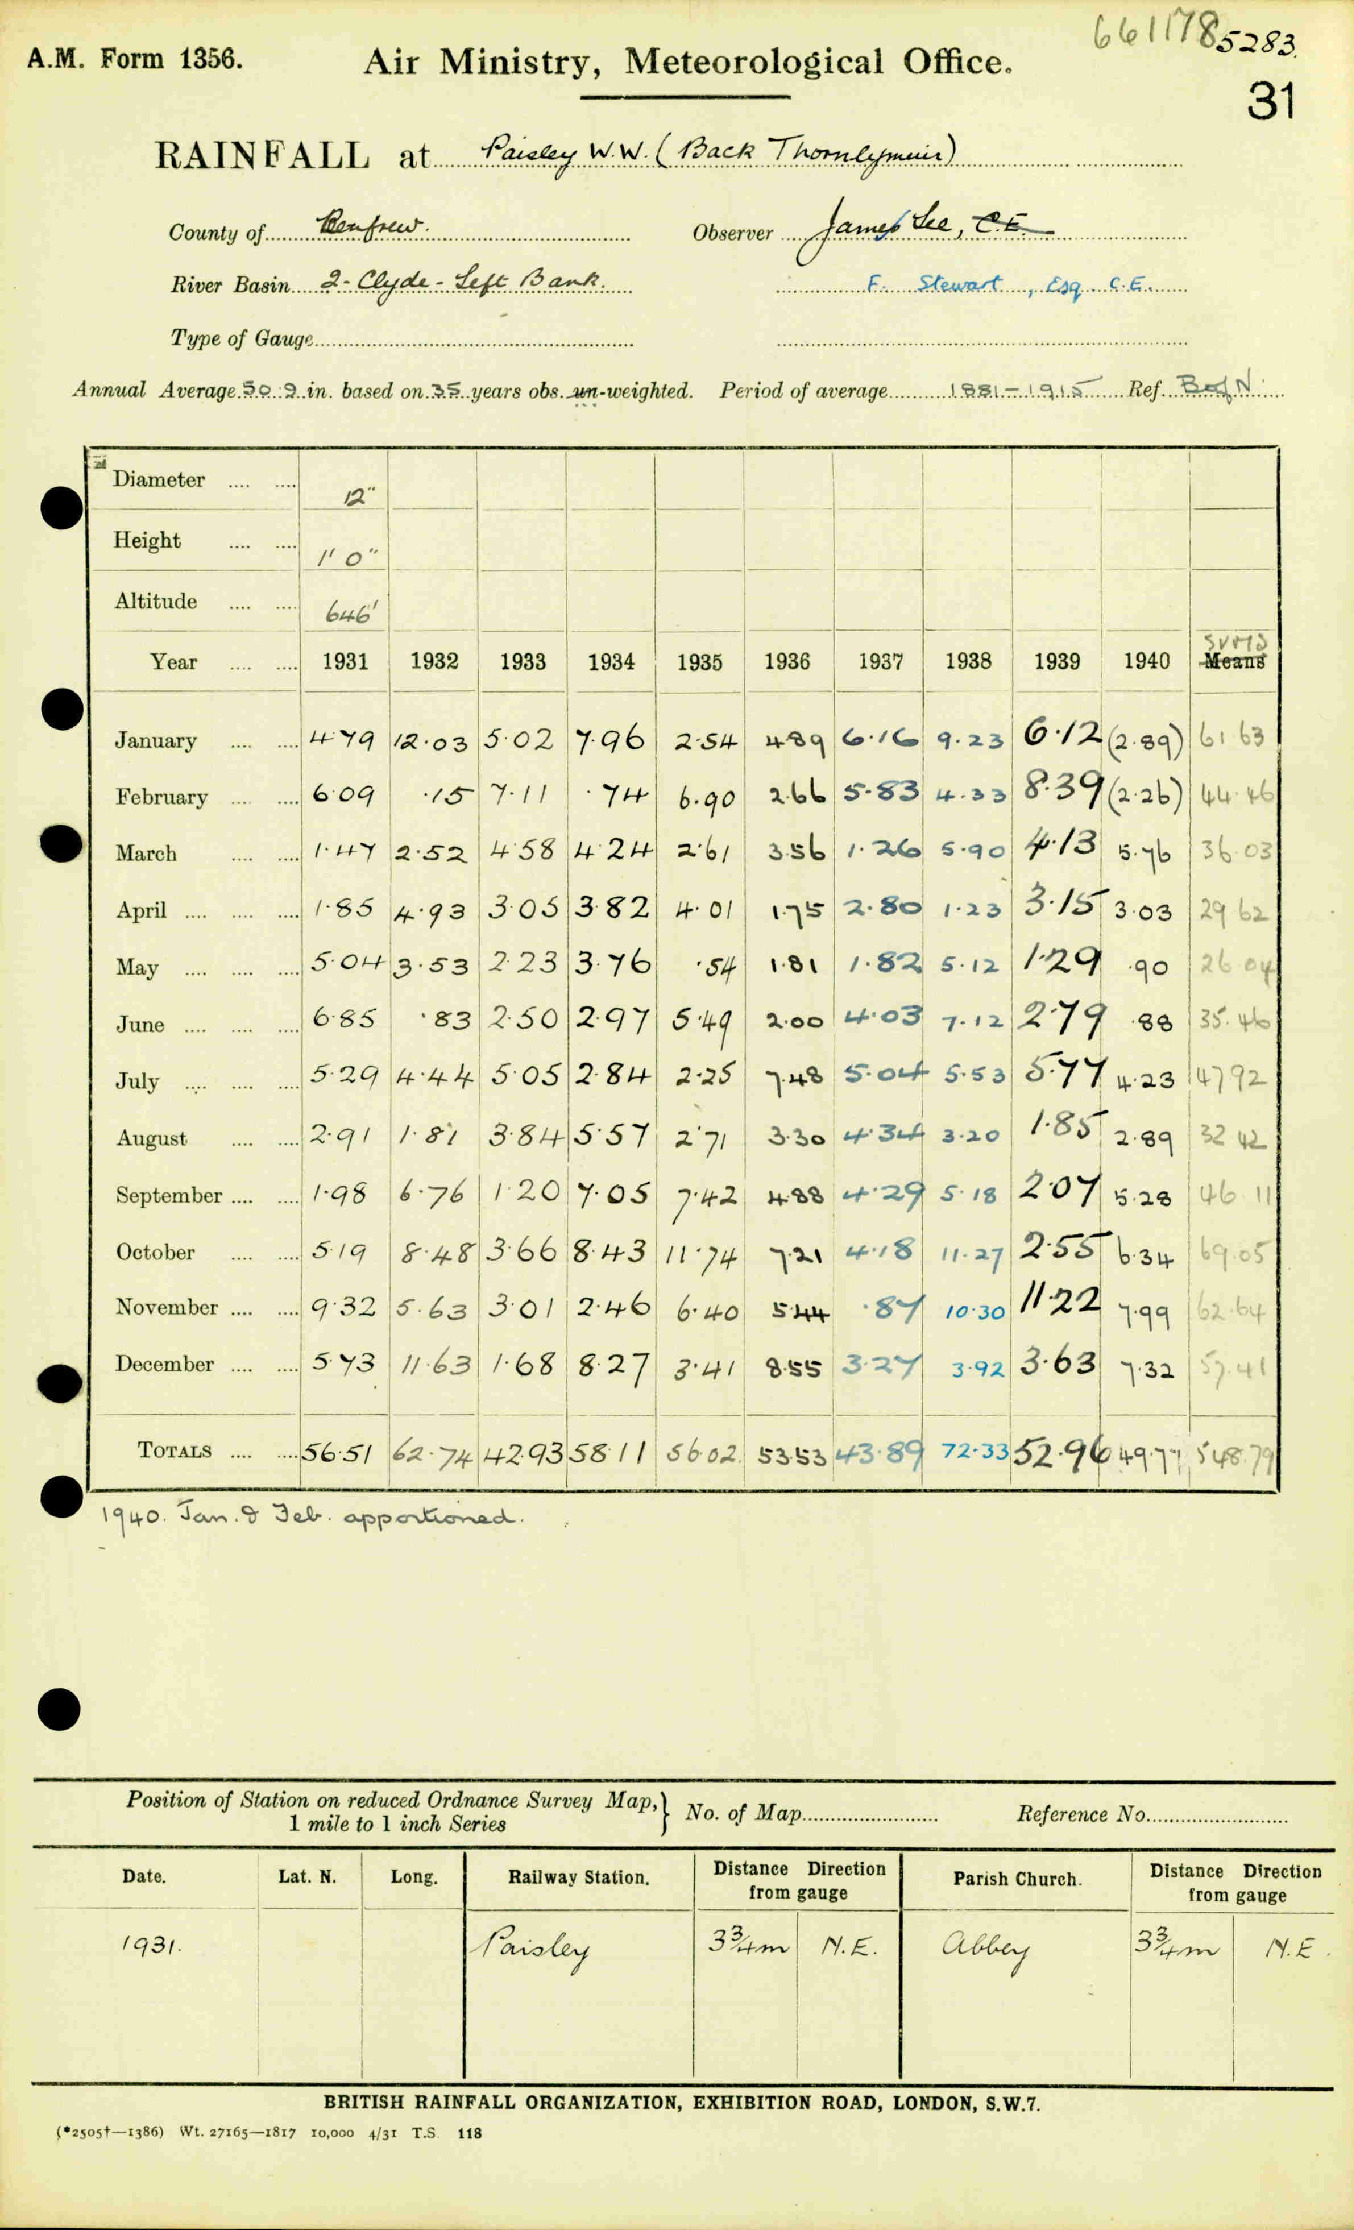 661178 5283.
A.M. Form 1356. Air Ministry, Meteorological Office.
31
RAINFALL at Paisley W.W. (Back Thornlymuir)
County of Renfrew. Observer James Lee, C.E.
River Basin 2 - Clyde - Left Bank. F. Stewart, Esq. C.E.
Type of Gauge
Annual Average 50.9 in. based on 35 years obs. un-weighted. Period of average 1881-1915 Ref. B of N.
Diameter .... .... 12"
Height .... .... 1' 0"
Altitude .... .... 646'
Sums
Year .... .... 1931 1932 1933 1934 1935 1936 1937 1938 1939 1940 Means
January .... .... 4.79 12.03 5.02 7.96 2.54 4.89 6.16 9.23 6.12 (2.89) 61.63
February .... .... 6.09 .15 7.11 .74 6.90 2.66 5.83 4.33 8.39 (2.26) 44.46
March .... .... 1.47 2.52 4.58 4.24 2.61 3.56 1.26 5.90 4.13 5.76 36.03
April .... .... .... 1.85 4.93 3.05 3.82 4.01 1.75 2.80 1.23 3.15 3.03 29.62
May .... .... .... 5.04 3.53 2.23 3.76 .54 1.81 1.82 5.12 1.29 .90 26.04
June .... .... .... 6.85 .83 2.50 2.97 5.49 2.00 4.03 7.12 2.79 .88 35.46
July .... .... .... 5.29 4.44 5.05 2.84 2.25 7.48 5.04 5.53 5.77 4.23 47.92
August .... .... 2.91 1.81 3.84 5.57 2.71 3.30 4.34 3.20 1.85 2.89 32.42
September .... .... 1.98 6.76 1.20 7.05 7.42 4.88 4.29 5.18 2.07 5.28 46.11
October .... .... 5.19 8.48 3.66 8.43 11.74 7.21 4.18 11.27 2.55 6.34 69.05
November .... .... 9.32 5.63 3.01 2.46 6.40 5.44 .87 10.30 11.22 7.99 62.64
December .... .... 5.73 11.63 1.68 8.27 3.41 8.55 3.27 3.92 3.63 7.32 57.41
TOTALS .... .... 56.51 62.74 42.93 58.11 56.02 53.53 43.89 72.33 52.96 49.77 548.79
1940. Jan. & Feb. apportioned.
Position of Station on reduced Ordnance Survey Map, } No. of Map Reference No.
1 mile to 1 inch Series
Date. Lat. N. Long. Railway Station. Distance Direction from gauge Parish Church. Distance Direction from gauge
1931. Paisley 3¾m N.E. Abbey 3¾m N.E.
BRITISH RAINFALL ORGANIZATION, EXHIBITION ROAD, LONDON, S.W.7.
(*2505†—1386) Wt. 27165—1817 10,000 4/31 T.S. 118